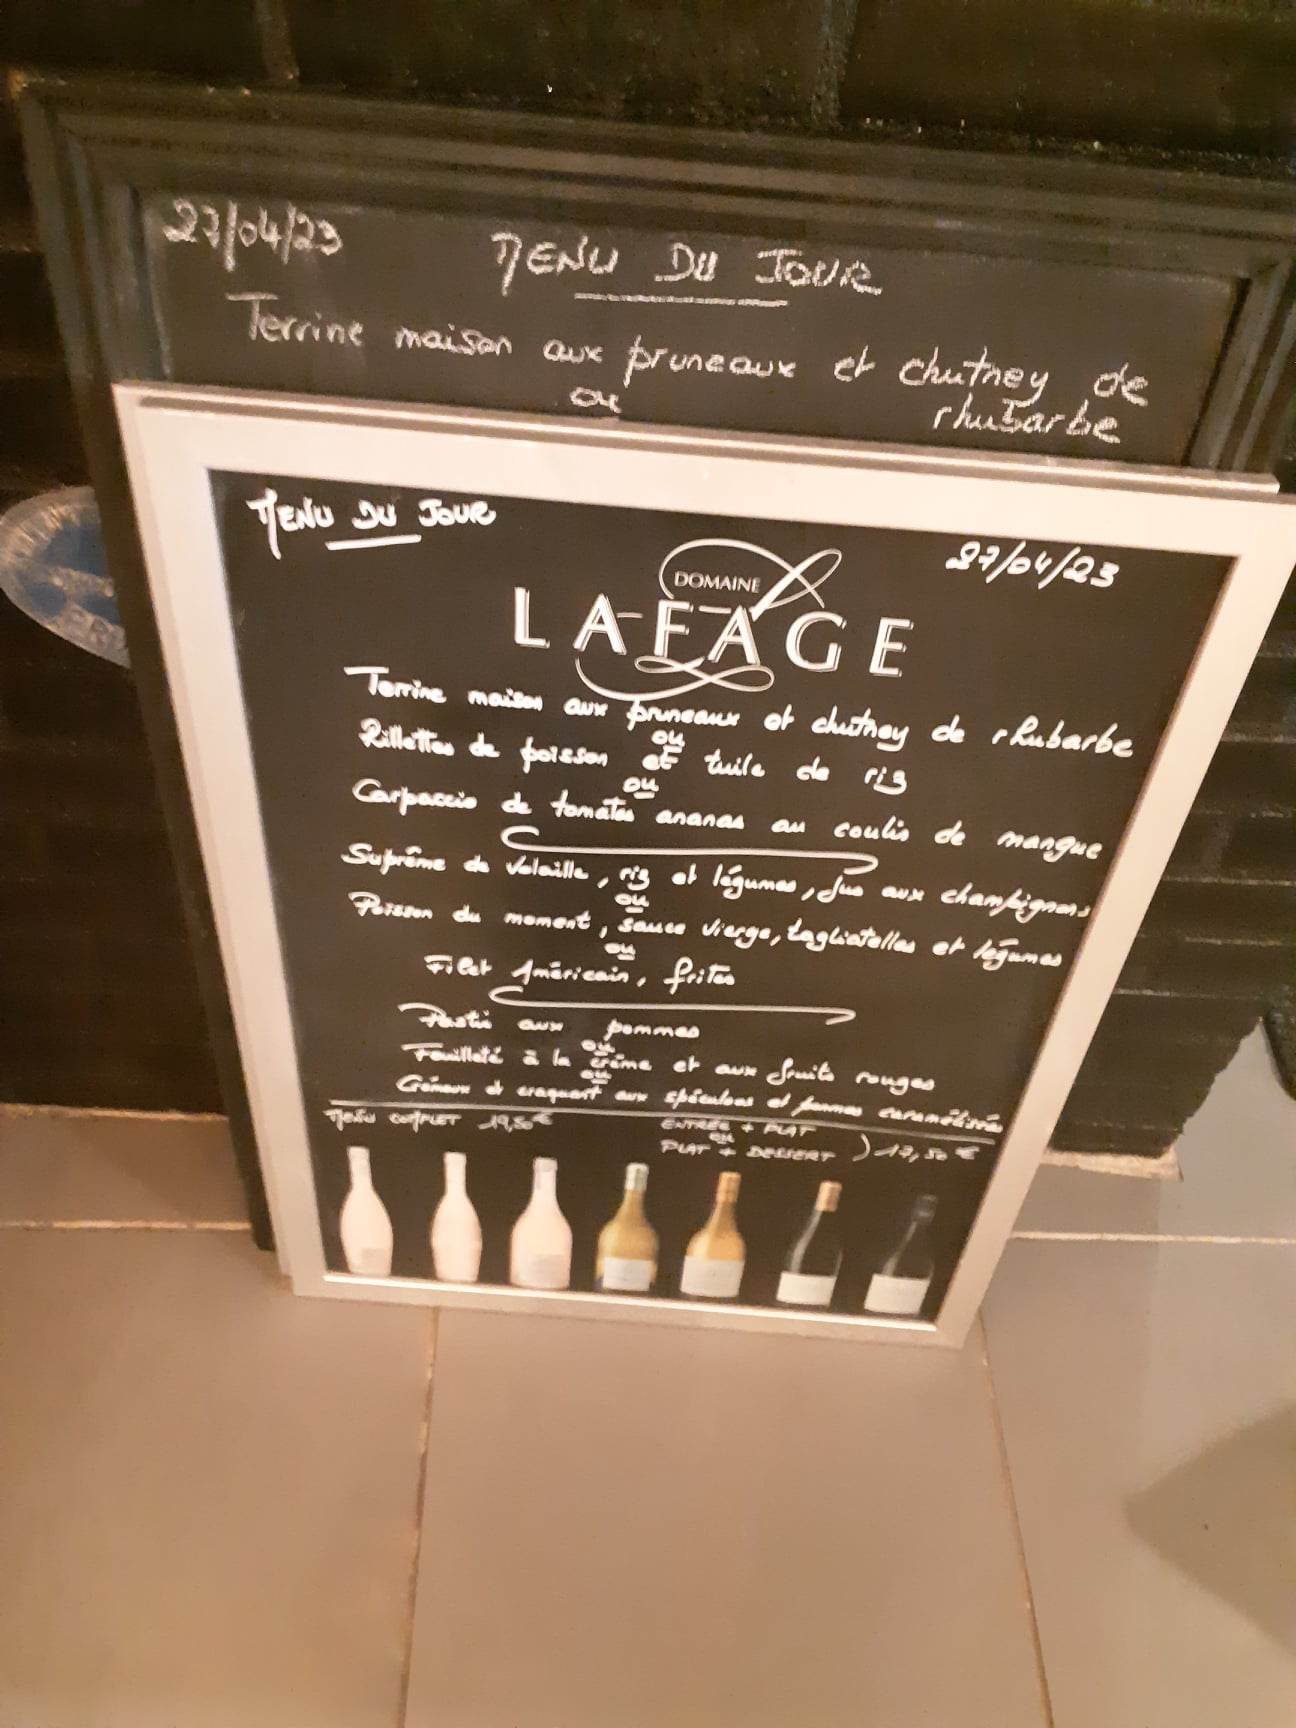 27/04/23 MENU DU JOUR
Terrine maison aux pruneaux et chutney de
ou rhubarbe
MENU DU JOUR
27/04/23
DOMAINE
LAFAGE
Terrine maison aux pruneaux et chutney de rhubarbe
ou
Rillettes de poisson et tuile de riz
ou
Carpaccio de tomates ananas au coulis de mangue
Suprême de volaille, riz et légumes, jus aux champignons
ou
Poisson du moment, sauce vierge, tagliatelles et légumes
ou
Filet Américain, frites
Pastis aux pommes
ou
Feuilleté à la crème et aux fruits rouges
ou
Crémeux et craquant aux spéculoos et pommes caramélisées
MENU COMPLET 19,50€
ENTRÉE + PLAT
ou
PLAT + DESSERT ) 17,50 €